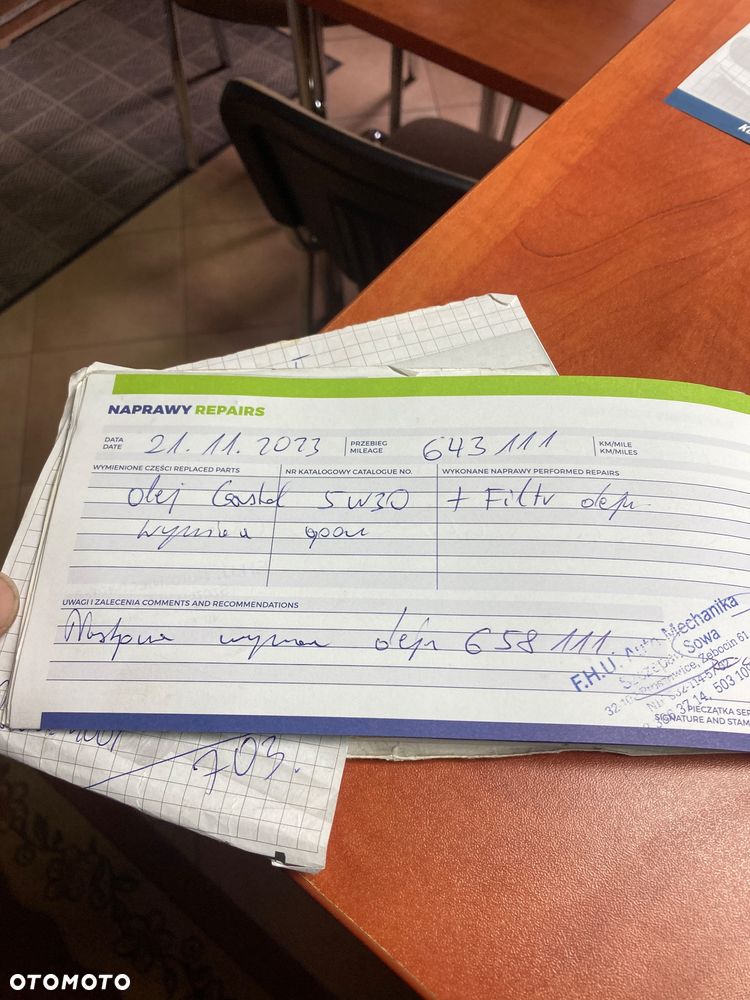 NAPRAWY REPAIRS
DATA DATE 21.11.2023 PRZEBIEG MILEAGE 643 111 KM/MILE KM/MILES
WYMIENIONE CZĘŚCI REPLACED PARTS NR KATALOGOWY CATALOGUE NO. WYKONANE NAPRAWY PERFORMED REPAIRS
olej Castrol 5W30 + Filtr oleju
wymiana opon
UWAGI I ZALECENIA COMMENTS AND RECOMMENDATIONS
Następna wymiana oleju 658 111.
F.H.U. Auto-Mechanika
Sowa
PIECZĄTKA
SIGNATURE AND STAM
703.
OTOMOTO